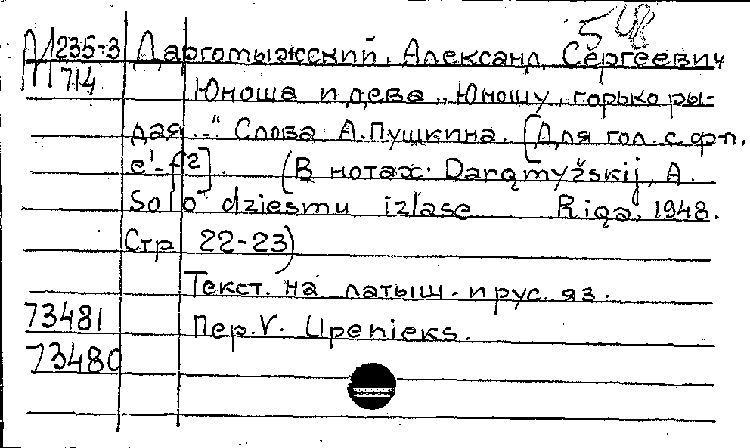 548
Д 235-3 Даргомыжский, Александ. Сергеевич
714
Юноша и дева „Юношу, горько ры-
дая..." Слова А. Пушкина. [Для гол. с ф-п.
e'-f²]. (В нотах: Darqmyžskij, A.
Solo dziesmu izlase Riga, 1948.
Стр 22-23)
Текст. на латыш. и рус. яз.
73481 Пер. V. Upenieks.
73480